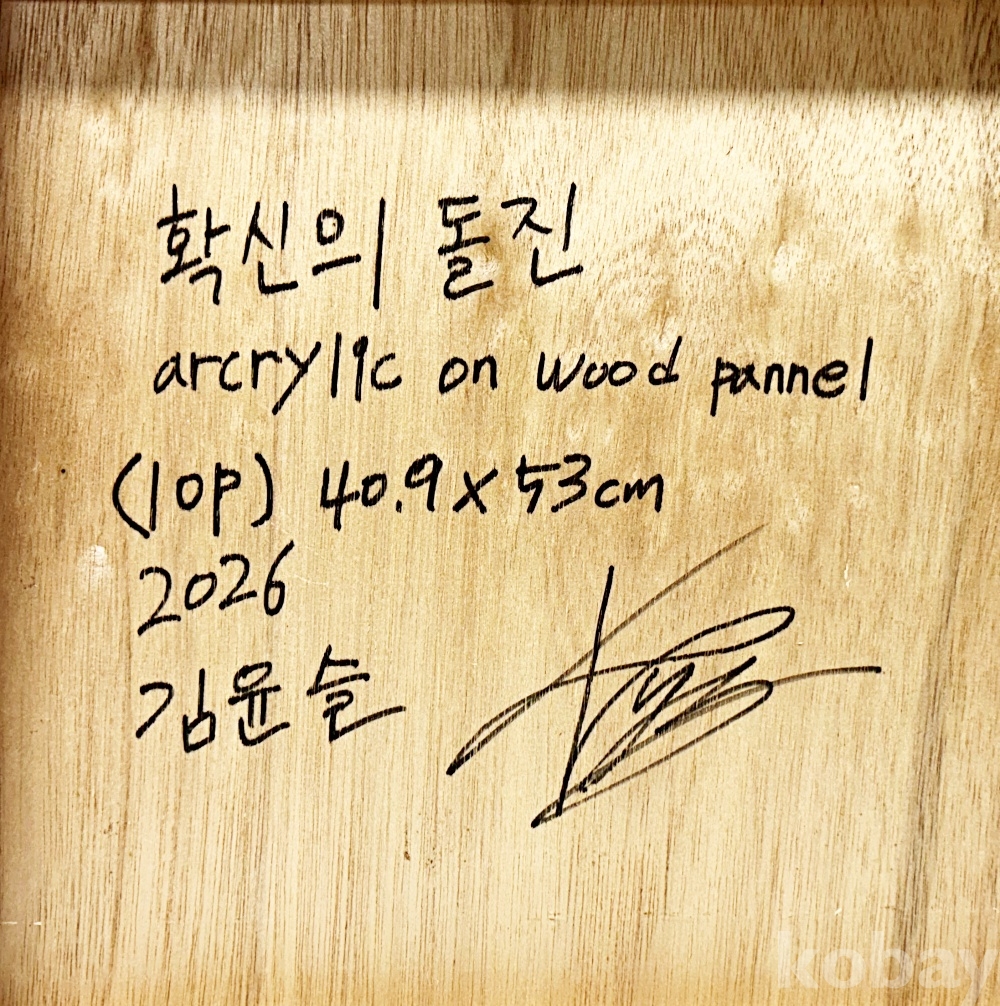 확신의 돌진
arcrylic on wood pannel
(10P) 40.9 x 53cm
2026
김윤슬
kobay